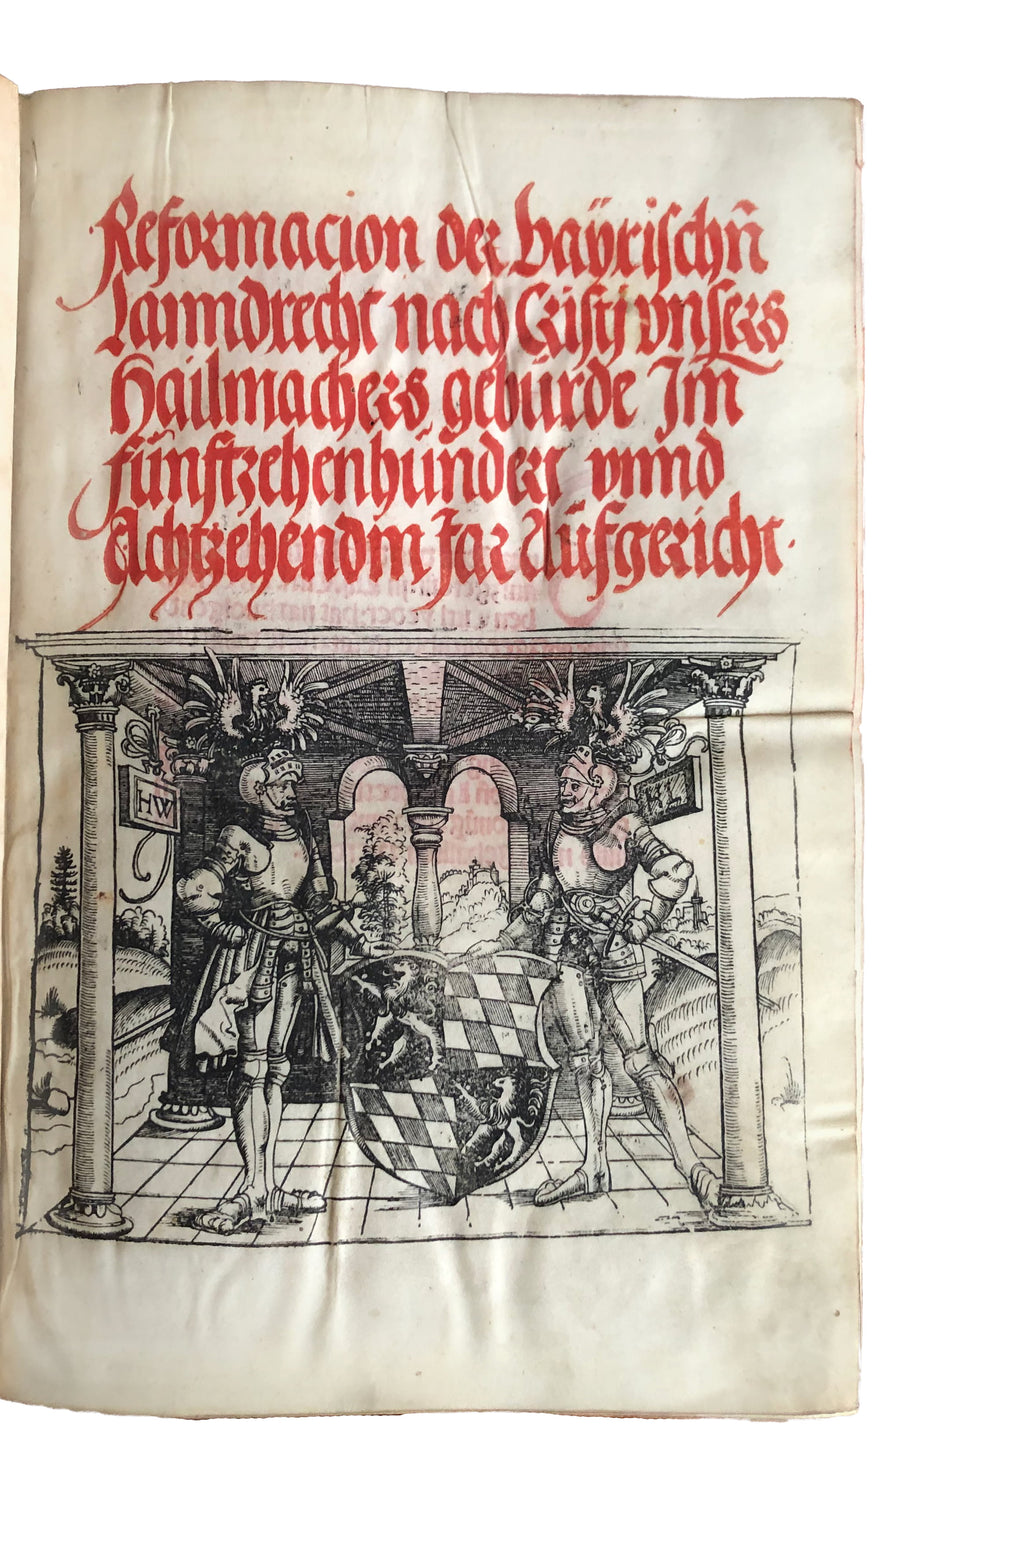 Reformacion der bayrischñ
Lanndrecht nach Cristi vnsers
Hailmachers gebürde Im
fünfftzehenhundert vnnd
Achtzehendm Jar Aufgericht.
HW